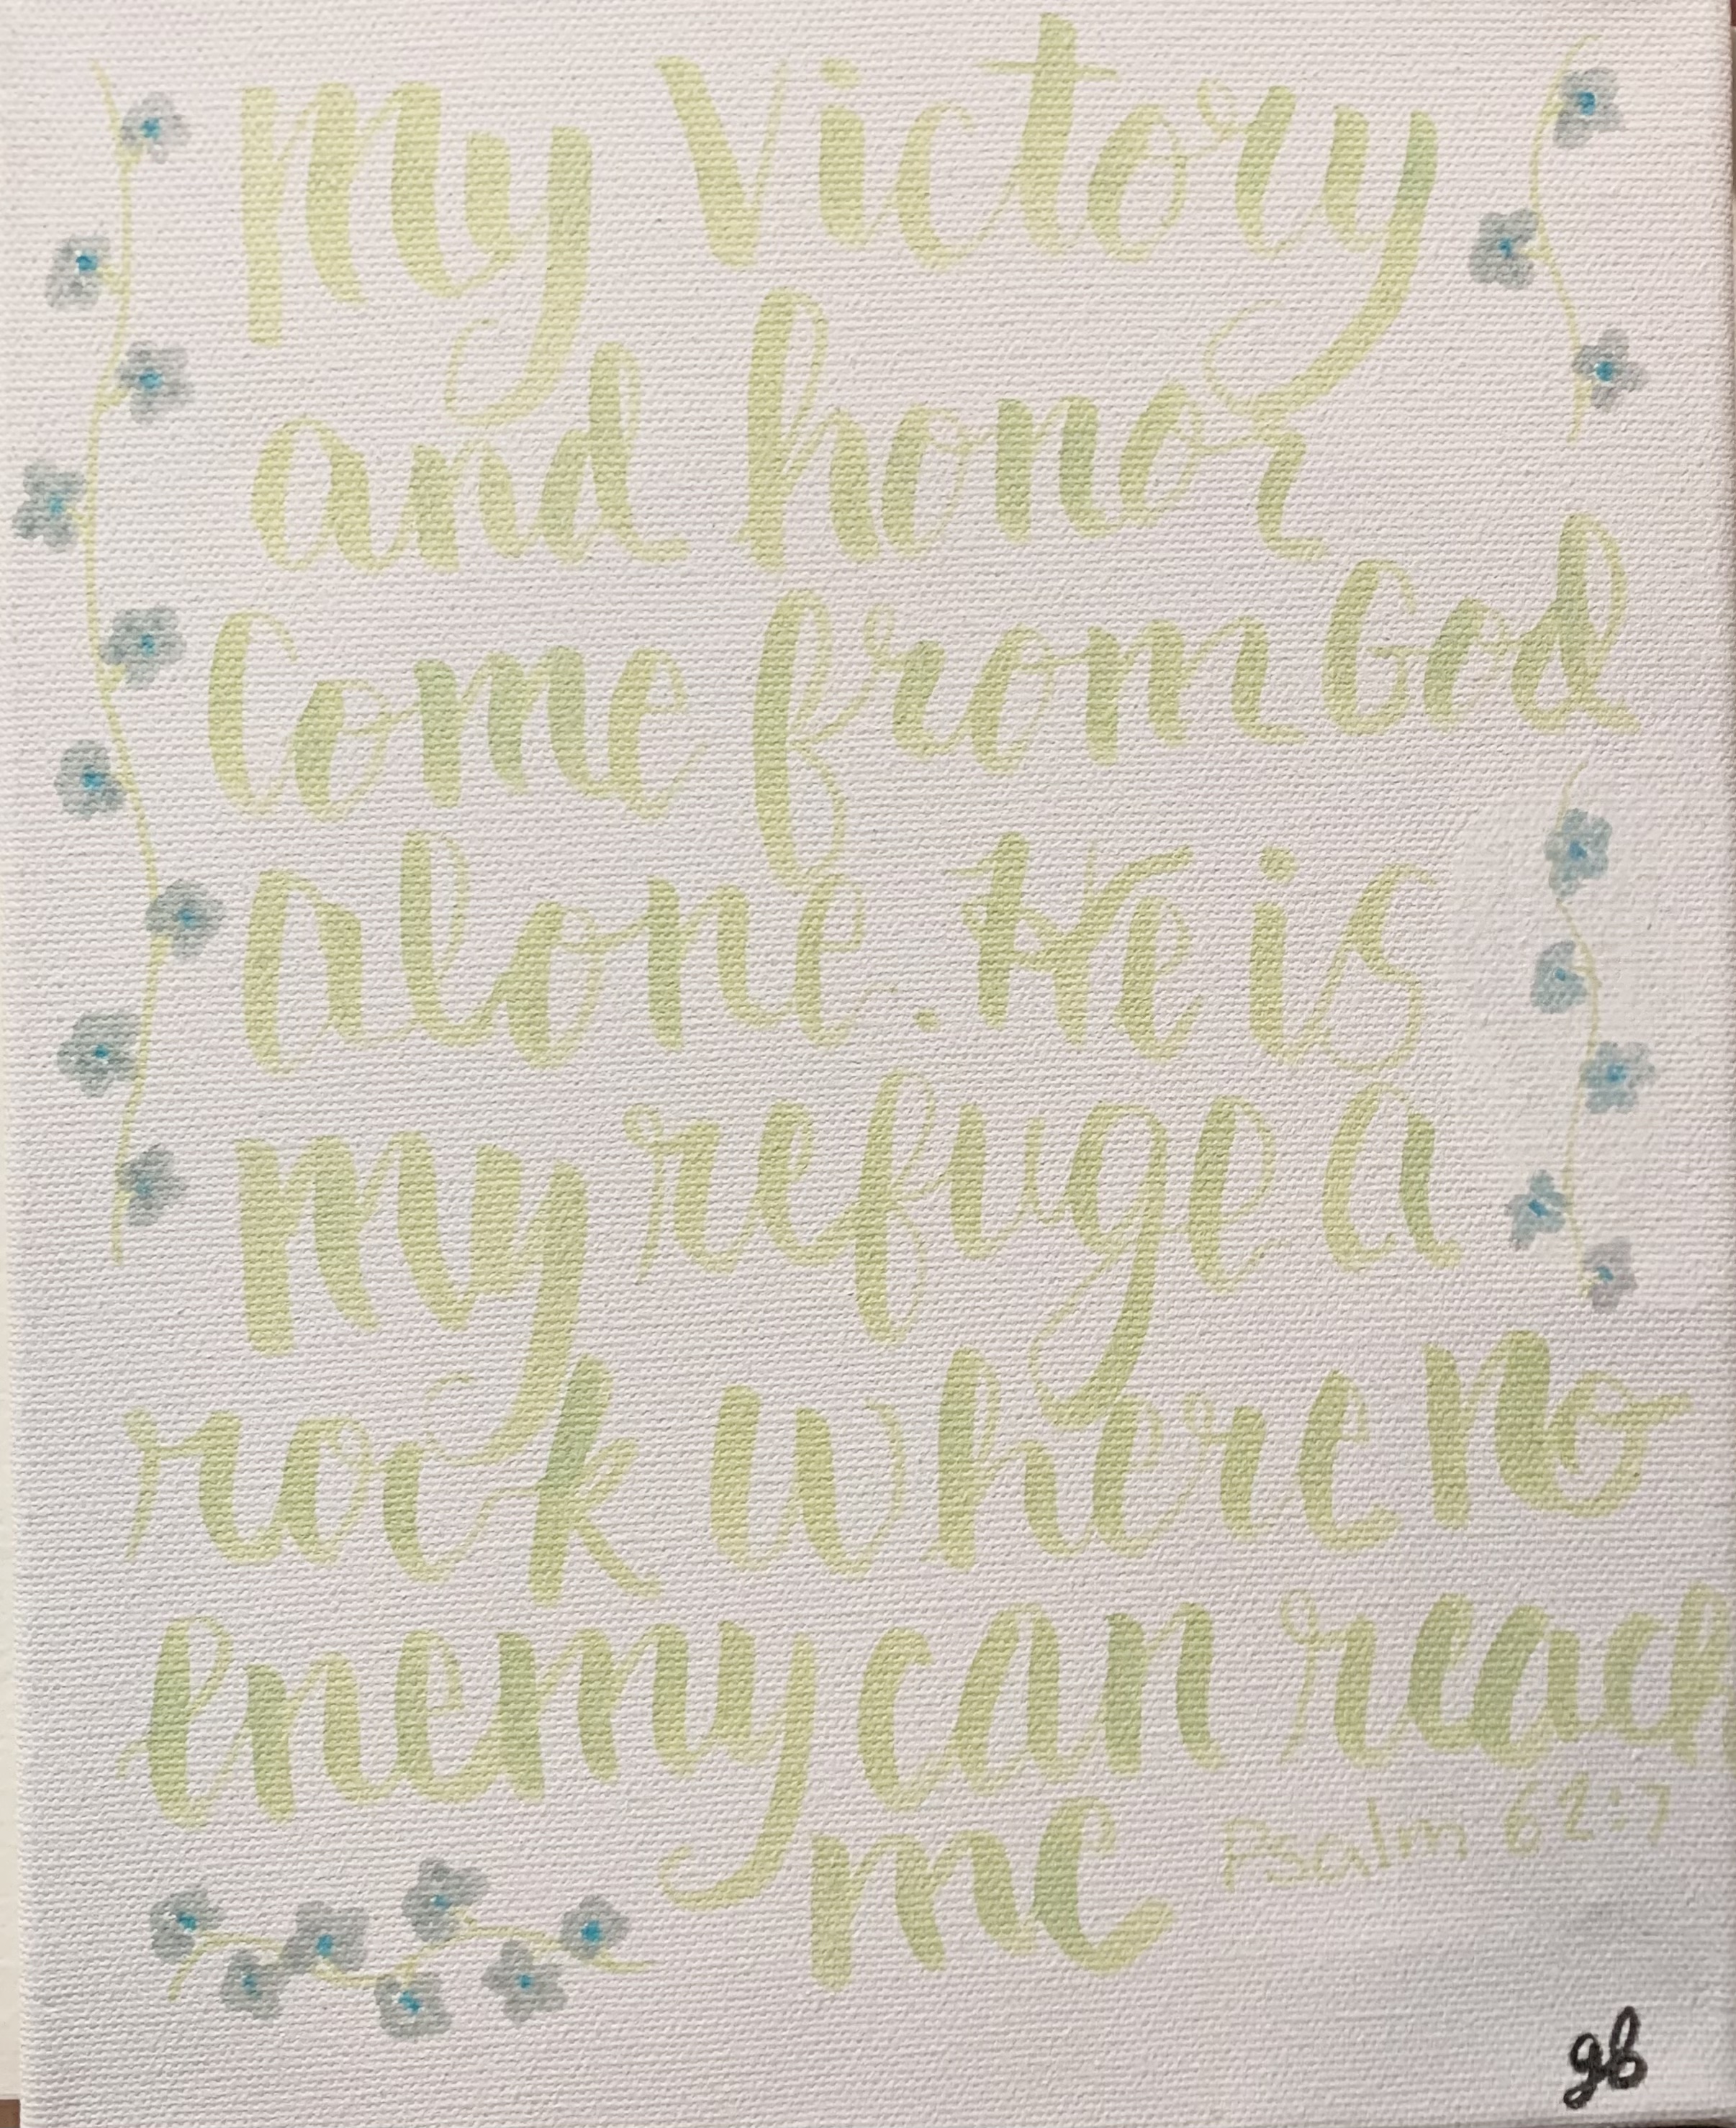 My Victory
and honor
Come from God
alone. He is
my refuge a
rock where no
enemy can reach
me
Psalm 62:7
gb